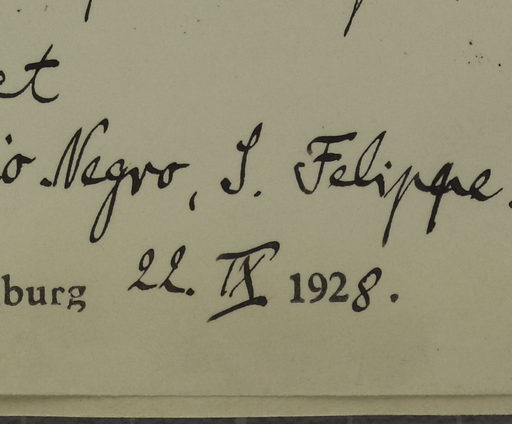 et
io Negro, S. Felippe.
burg 22. IX 1928.